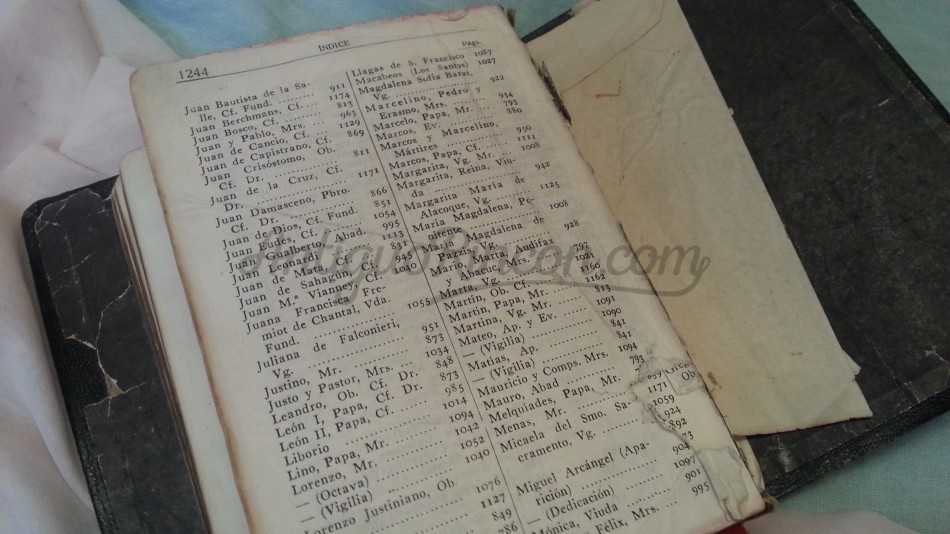 1244
INDICE
Págs.
Juan Bautista de la Sa-
lle, Cf. Fund. ........ 911
Juan Berchmans, Cf. ... 1174
Juan Bosco, Cf. ........ 815
Juan y Pablo, Mrs. ... 963
Juan de Cancio, Cf. ... 1129
Juan de Capistrano, Cf. 869
Juan Crisóstomo, Ob.
Cf. Dr. ........ 811
Juan de la Cruz, Cf.
Dr. ........ 1171
Juan Damasceno, Pbro.
Cf. Dr. ........ 866
Juan de Dios, Cf. Fund. 851
Juan Eudes, Cf. ........ 1054
Juan Gualberto, Abad. 995
Juan Leonardi Cf. ... 1113
Juan de Mata, Cf. ... 831
Juan de Sahagún, Cf. 945
Juan M.ª Vianney, Cf. 1040
Juana Francisca Fre-
miot de Chantal, Vda.
Fund. ........ 1055
Juliana de Falconieri,
Vg. ........ 951
Justino, Mr. ........ 873
Justo y Pastor, Mrs. ... 1034
Leandro, Ob. Cf. Dr. 848
León I, Papa, Cf. Dr. 873
León II, Papa, Cf. ... 985
Liborio ........ 1014
Lino, Papa, Mr. ........ 1094
Lorenzo, Mr. ........ 1042
— (Octava) ........ 1052
— (Vigilia) ........ 1040
Lorenzo Justiniano, Ob
Cf. ........ 1076
1127
849
786
Llagas de S. Francisco 1087
Macabeos (Los Santos) 1027
Magdalena Sofía Barat,
Vg. ........ 922
Marcelino, Pedro y
Erasmo, Mrs. ........ 934
Marcelo, Papa, Mr. ... 793
Marcos, Ev. ........ 880
Marcos y Marcelino,
Mártires ........ 950
Marcos, Papa, Cf. ...... 1111
Margarita, Vg. Mr. ... 1008
Margarita, Reina, Viu-
da ........ 942
Margarita María de
Alacoque, Vg. ........ 1125
María Magdalena, Pe-
nitente ........ 1008
María Magdalena de
Pazzis, Vg. ........ 928
Mario, Marta, Audifax
y Abacuc, Mrs. ... 797
Marta, Vg. ........ 1021
Martín, Ob. Cf. ........ 1160
Martín, Papa, Mr. ...... 1162
Martina, Vg. Mr. ...... 813
Mateo, Ap. y Ev. ...... 1091
— (Vigilia) ........ 1090
Matías, Ap. ........ 841
— (Vigilia) ........ 841
Mauricio y Comps. Mrs. 1094
Mauro, Abad ........ 793
Melquiades, Papa, Mr.
Menas, Mr. ........ 1171
Micaela del Smo. Sa- 1059
cramento, Vg. ........ 924
892
Miguel Arcángel (Apa-
rición) ........ 904
— (Dedicación) ........ 1097
Mónica, Viuda ........ 901
Félix, Mrs. ... 995
AntiguoRincon.com